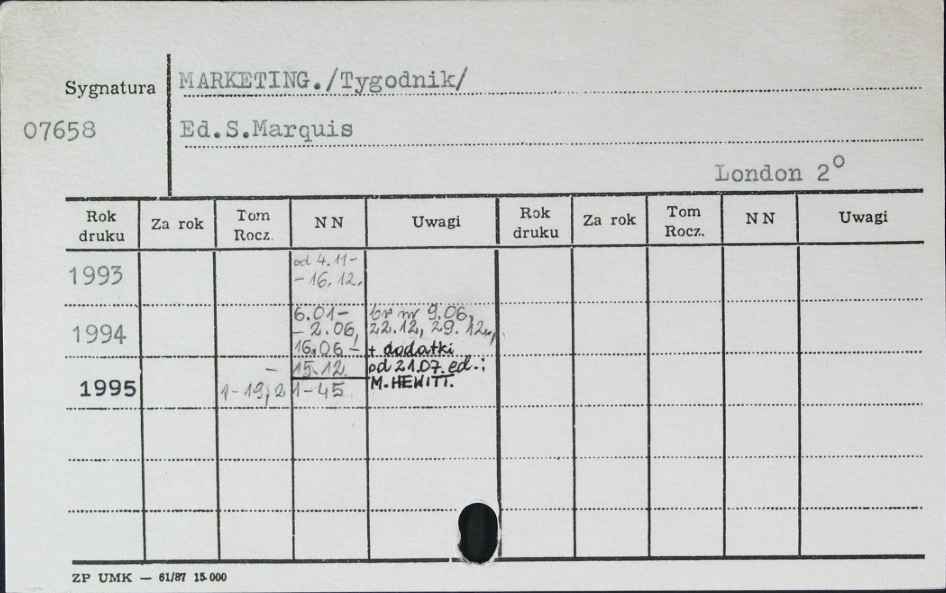 Sygnatura
MARKETING./Tygodnik/
07658
Ed.S.Marquis
London 2°
Rok druku Za rok Tom Rocz. NN Uwagi Rok druku Za rok Tom Rocz. NN Uwagi
1993 od 4.11-
- 16.12.
1994 6.01- br nr 9.06,
- 2.06, 22.12, 29.12,
16.06 - + dodatki
- 15.12. od 21.07. ed.:
1995 1-19,2 1-45 M.HEWITT.
ZP UMK — 61/87 15.000